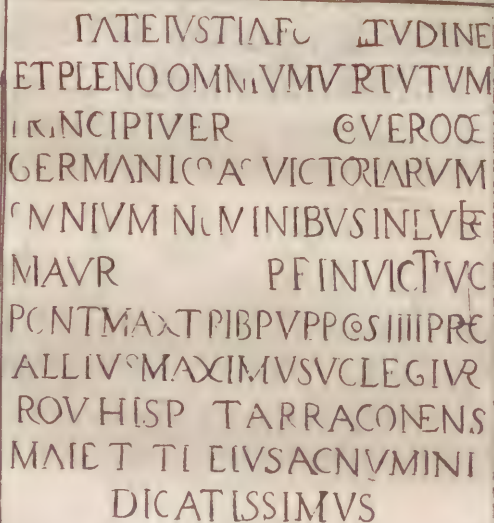 TATE IVSTIA FO ITVDINE
ET PLENO OMNIVM V RTVTVM
RINCIPI VER GO VERO GE
GERMANICO AC VICTORIARVM
MNIVM NOMINIBVS INLVTRE
MAVR P F INVICTVC
PONT MAX T P IB P V P P COS IIII PRC
ALLIVS MAXIMVS V C LEG IVR
ROV HISP TARRACONENS
MAIET TI EIVS AC NVMINI
DICATISSIMVS